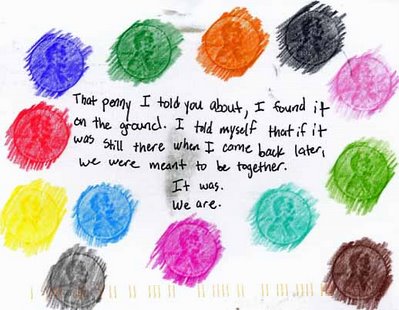 That penny I told you about, I found it
on the ground. I told myself that if it
was still there when I came back later,
we were meant to be together.
It was.
We are.